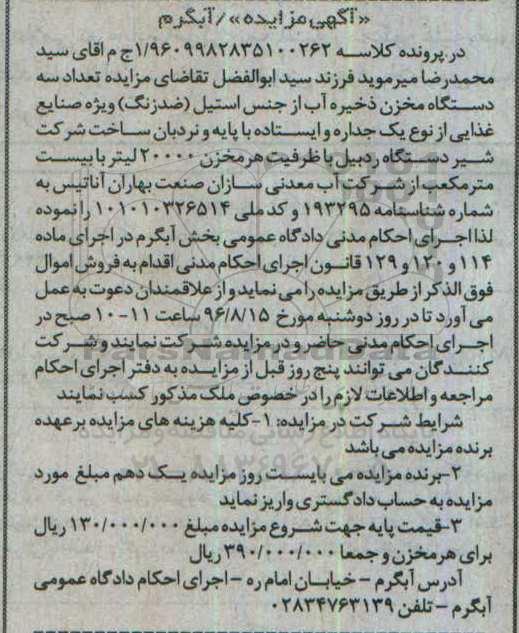 «آگهی مزایده»/آبگرم
در پرونده کلاسه ۱/۹۶۰۹۹۸۲۸۳۵۱۰۰۲۶۲ج م اقای سید
محمدرضا میرموید فرزند سید ابوالفضل تقاضای مزایده تعداد سه
دستگاه مخزن ذخیره آب از جنس استیل (ضدزنگ) ویژه صنایع
غذایی از نوع یک جداره و ایستاده با پایه و نردبان ساخت شرکت
شیر دستگاه ردبیل با ظرفیت هر مخزن ۲۰۰۰۰ لیتر با بیست
مترمکعب از شرکت آب معدنی سازان صنعت بهاران آناتیس به
شماره شناسنامه ۱۹۳۲۹۵ و کد ملی ۱۰۱۰۱۰۳۲۶۵۱۴ را نموده
لذا اجرای احکام مدنی دادگاه عمومی بخش آبگرم در اجرای ماده
۱۱۴ و ۱۲۰ و ۱۲۹ قانون اجرای احکام مدنی اقدام به فروش اموال
فوق الذکر از طریق مزایده را می نماید و از علاقمندان دعوت به عمل
می آورد تا در روز دوشنبه مورخ ۹۶/۸/۱۵ ساعت ۱۱-۱۰ صبح در
اجرای احکام مدنی حاضر و در مزایده شرکت نمایند و شرکت
کنندگان می توانند پنج روز قبل از مزایده به دفتر اجرای احکام
مراجعه و اطلاعات لازم را در خصوص ملک مذکور کسب نمایند
شرایط شرکت در مزایده: ۱-کلیه هزینه های مزایده بر عهده
برنده مزایده می باشد
۲-برنده مزایده می بایست روز مزایده یک دهم مبلغ مورد
مزایده به حساب دادگستری واریز نماید
۳-قیمت پایه جهت شروع مزایده مبلغ ۱۳۰/۰۰۰/۰۰۰ ریال
برای هر مخزن و جمعا ۳۹۰/۰۰۰/۰۰۰ ریال
آدرس آبگرم - خیابان امام ره - اجرای احکام دادگاه عمومی
آبگرم - تلفن ۰۲۸۳۴۷۶۳۱۳۹
ParsNamadData